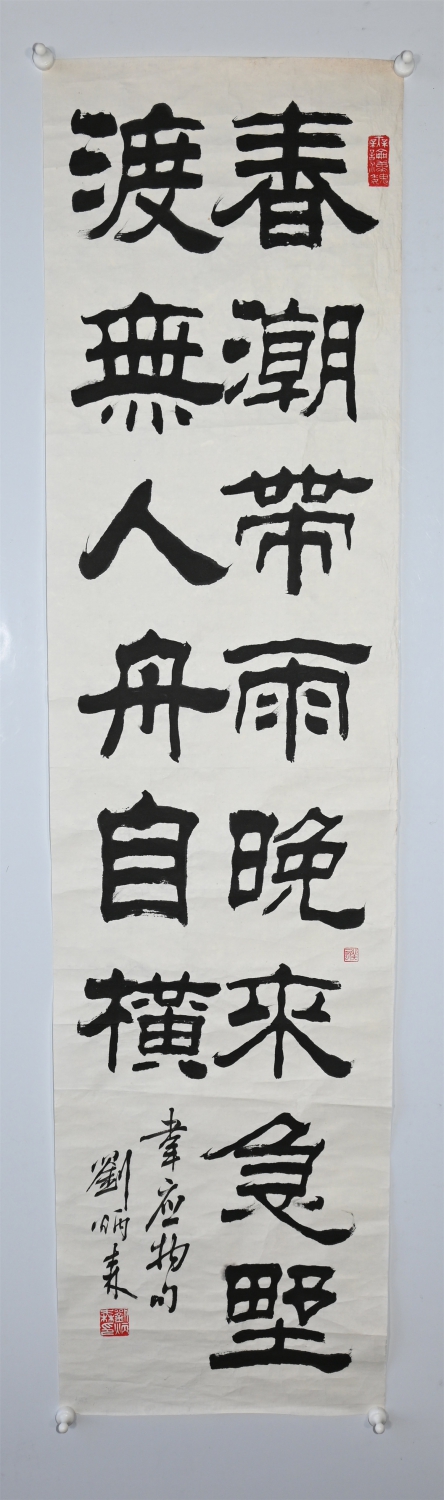 春潮帶雨晚來急野
渡無人舟自橫
韋应物句
劉炳森